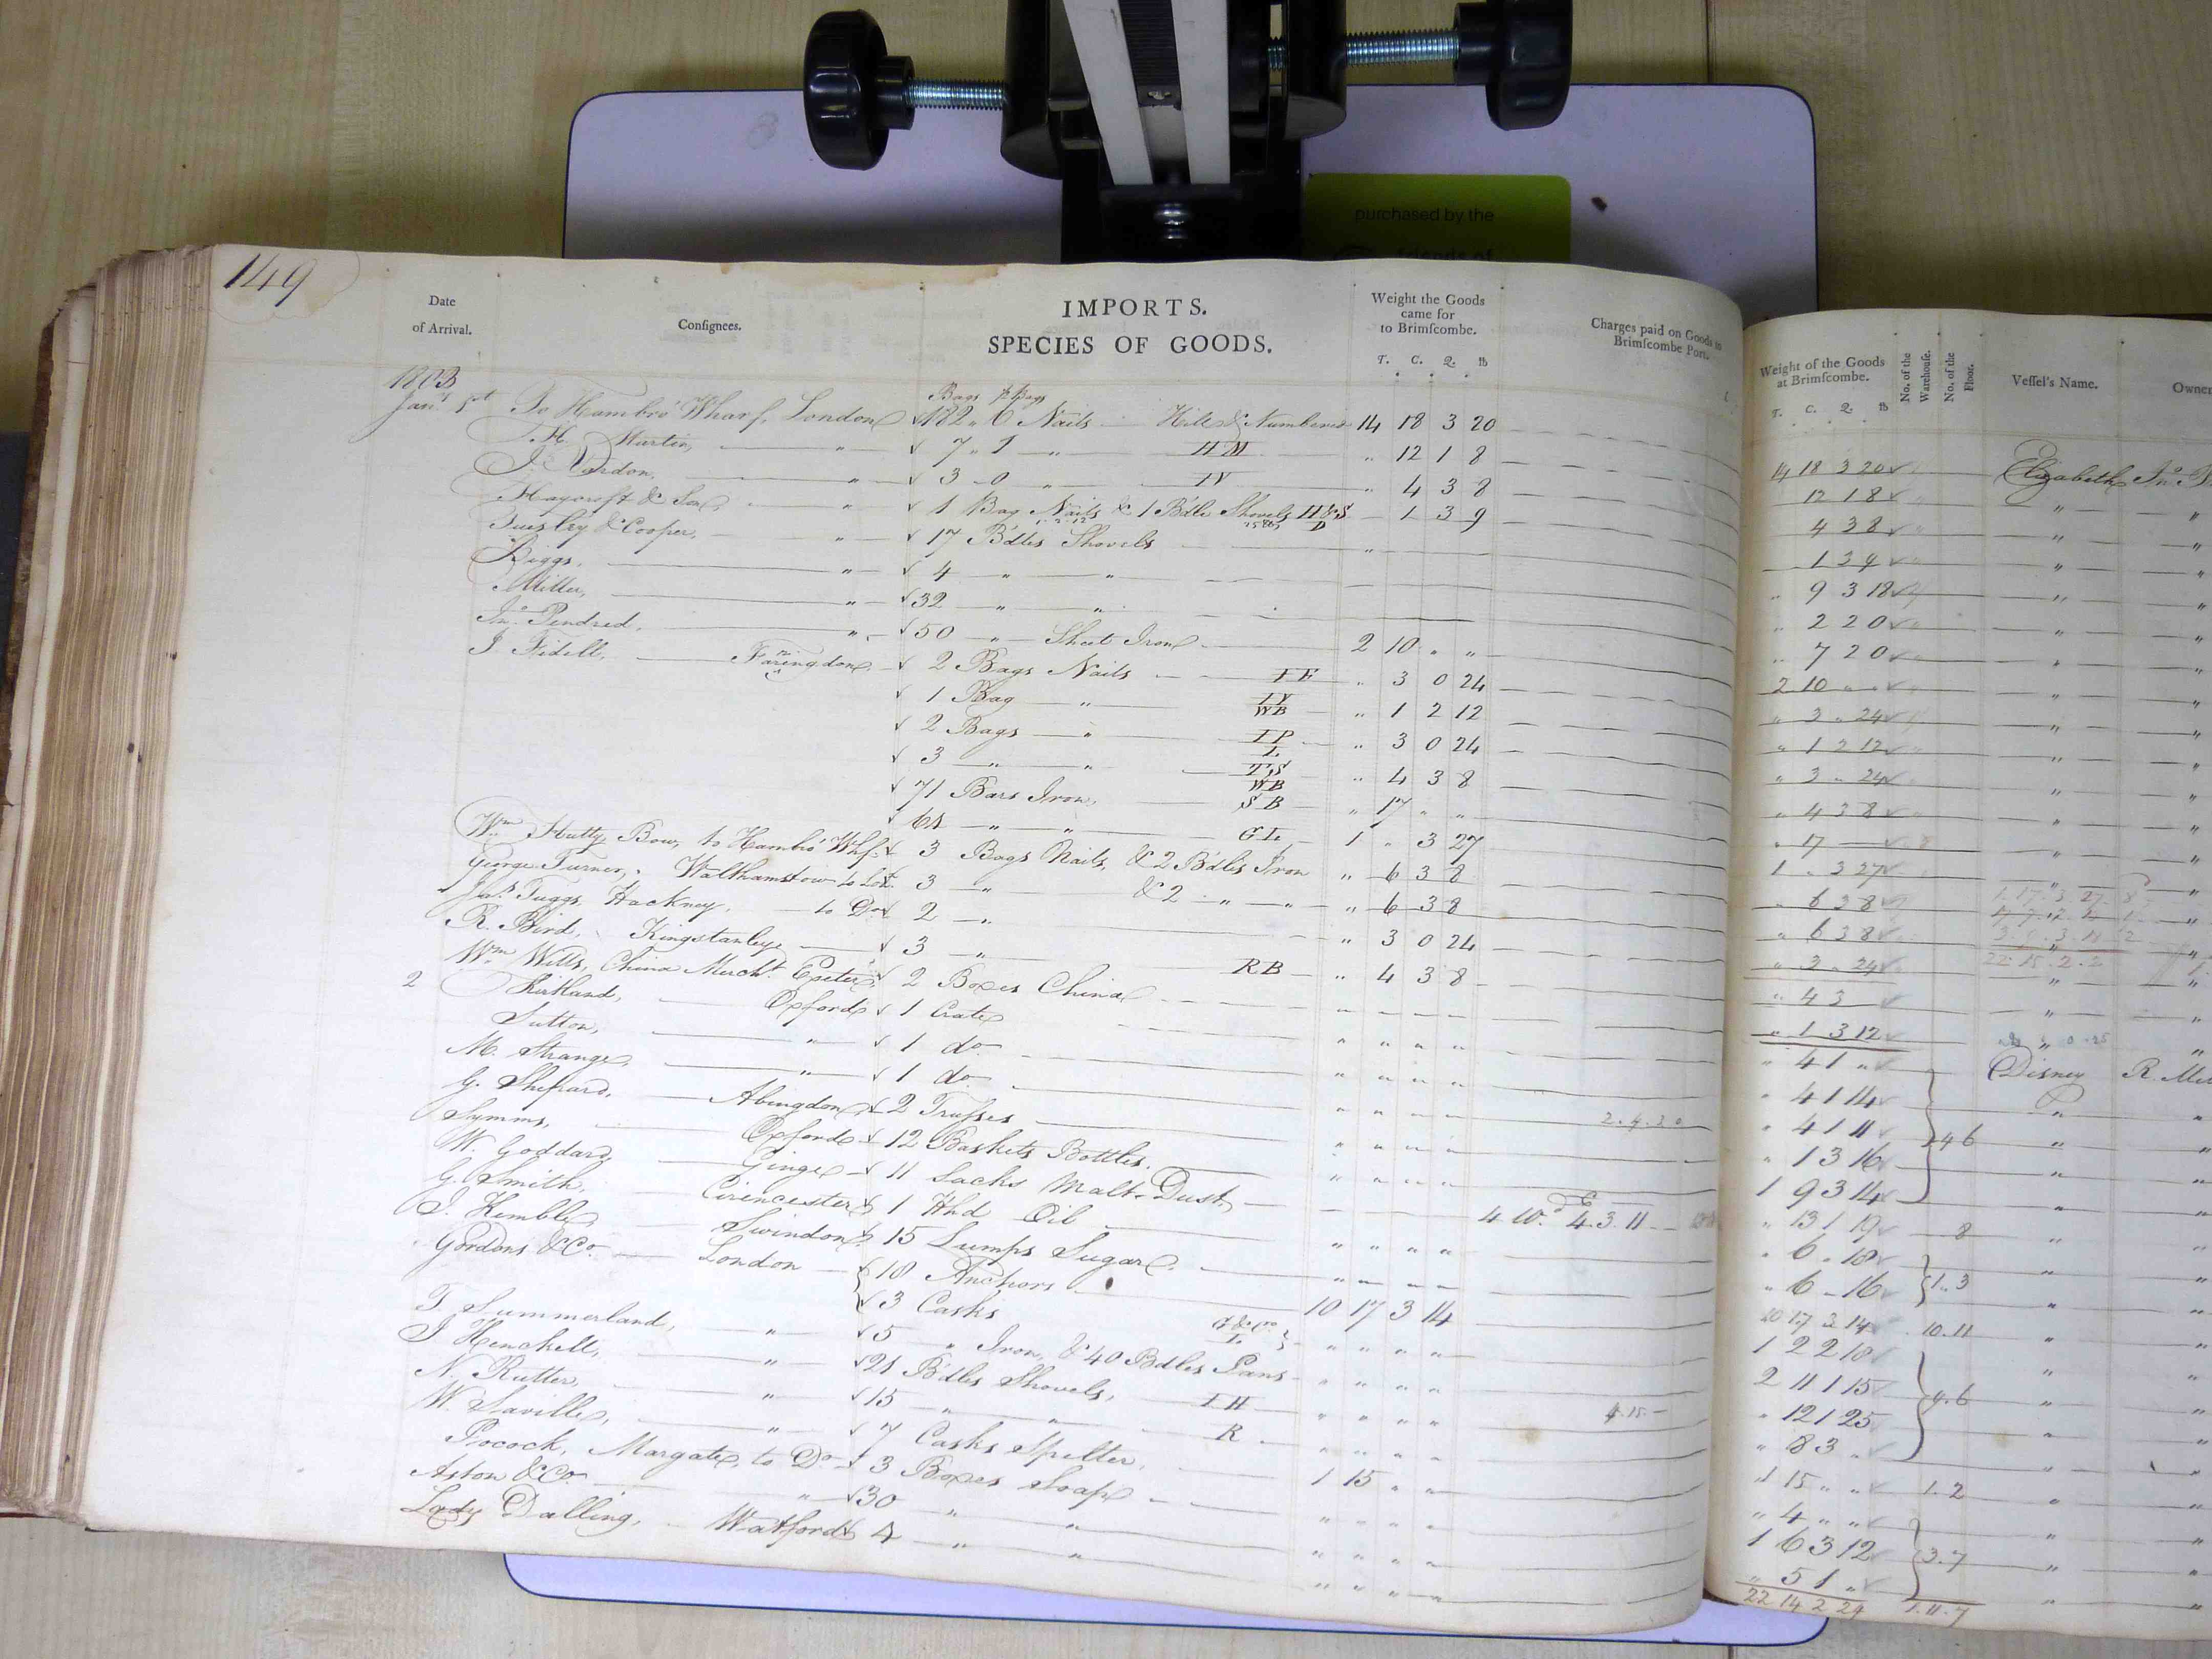 purchased by the
friends of
149
Date of Arrival.
Consignees.
IMPORTS.
SPECIES OF GOODS.
Weight the Goods came for to Brimscombe.
T. C. Q. lb
Charges paid on Goods in Brimscombe Port.
Weight of the Goods at Brimscombe.
T. C. Q. lb
No. of the Warehouse.
No. of the Floor.
Vessel's Name.
Owner
1803
Bags
Jany 1st To Hambro' Wharf, London 182 " 6 Nails Hill & Numbered 14 18 3 20 14 18 3 20 Elizabeth Jno
H. Martin, " 7 " 1 " HM " 12 1 8 12 1 8 " "
J. Vardon, " 3 - 0 " IV " 4 3 8 4 3 8 " "
Haycroft & Son, " 1 Bag Nails & 1 Bdle Shovels H&S 1 3 9 1 3 9 " "
& Cooper, " 17 Bdles Shovels " 9 3 18 " "
Biggs, " 4 " " " 2 2 0 " "
Miller, " 32 " " " 7 2 0 " "
Jno. Pendred, " 50 " Sheet Iron 2 10 " " 2 10 " " " "
J. Fidell, Faringdon 2 Bags Nails IF " 3 0 24 " 3 " 24 " "
1 Bag " " 1 2 12 " 1 2 12 " "
2 Bags " IP " 3 0 24 " 3 " 24 " "
3 " " " 4 3 8 " 4 3 8 " "
71 Bars Iron, SB " 17 " " " 17 " "
61 " " GL 1 " 3 27 1 " 3 27 " "
Wm. Hutty, Bow, to Hambro' Whf. 3 Bags Nails, & 2 Bdles Iron " 6 3 8 " 6 3 8
George Turner, Walthamstow to 3 " & 2 " " " 6 3 8 " 6 3 8
Jas. Tuggs, Hackney, to Do 2 " " 3 0 24 " 3 " 24
R. Bird, Kingstanley 3 " RB " 4 3 8 " 4 3
Wm. Wills, China Mercht. Exeter 2 Boxes China " 1 3 12
2 Kirkland, Oxford 1 Crate " " " " " 4 1 " Disney R.
Sutton, " 1 do " " " " " 4 1 14 " "
M. Strange, " 1 do " " " " " 4 1 11 4 6 " "
G. Shepard, Abingdon 2 Trusses " " " " " 1 3 16 " "
Symms, Oxford 12 Baskets Bottles. " " " " 1 9 3 14 " "
W. Goddard, Ginge 11 Sacks Malt-Dust, 4.3.11 " 13 1 19 8 " "
G. Smith, Cirencester 1 Hhd Oil " " " " " 6 " 18 " "
J. Kemble, Swindon 15 Lumps Sugar " " " " " 6 - 16 1..3 " "
Gordons & Co. London 18 Anchors 10 17 3 14 10 17 3 14 10.11 "
3 Casks
T. Summerland, " 5 " Iron, & 40 Bdles Pans " " " " 1 2 2 18 " "
J. Henckell, " 21 Bdles Shovels, IH " " " " 2 11 1 15 4.6 " "
N. Rutter, " 15 " " R " " " " " 12 1 25 " "
W. Saville, " 7 Casks Spelter, " 8 3 " " "
Pocock, Margate, to Do 3 Boxes Soap 1 15 " " 1 15 " " 1.2 " "
Aston & Co. " 30 " " " " " " " 4 " "
Lady Dalling, Watford 4 " " " " " " 1 6 3 12 3.7 " "
" 5 1 "
22 14 2 24 1.11.7